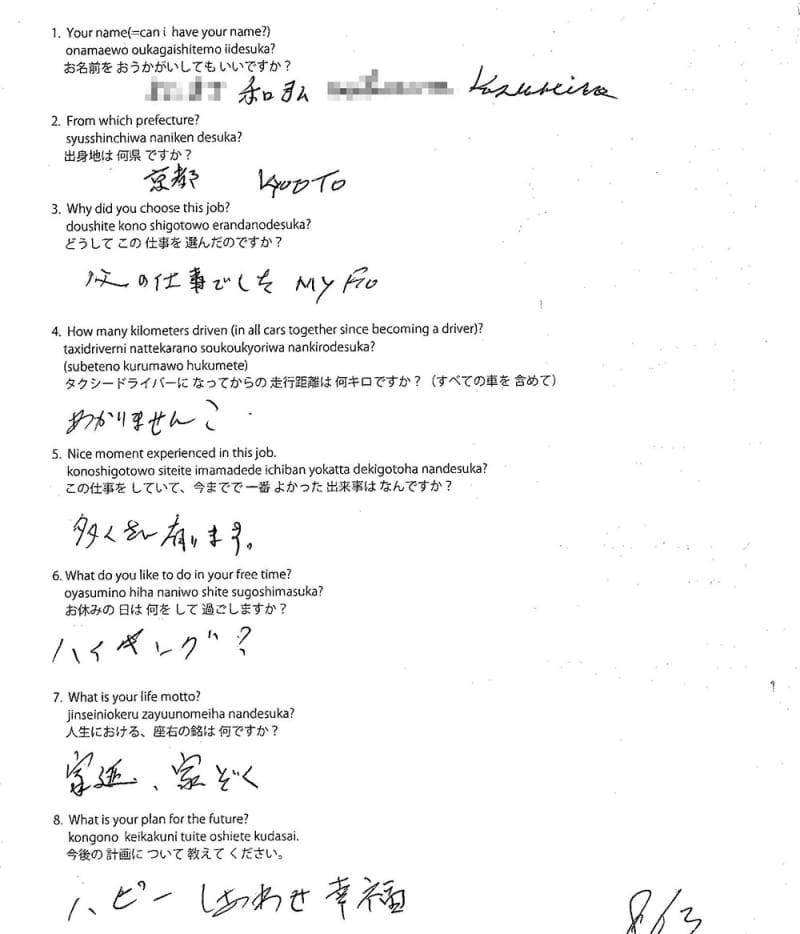 1. Your name(=can i have your name?)
onamaewo oukagaishitemo iidesuka?
お名前を おうかがいしても いいですか？
和弘
2. From which prefecture?
syusshinchiwa naniken desuka?
出身地は 何県 ですか？
京都 KYOTO
3. Why did you choose this job?
doushite kono shigotowo erandanodesuka?
どうして この 仕事を 選んだのですか？
父の仕事でした MY
4. How many kilometers driven (in all cars together since becoming a driver)?
taxidriverni nattekarano soukoukyoriwa nankirodesuka?
(subeteno kurumawo hukumete)
タクシードライバーに なってからの 走行距離は 何キロですか？（すべての車を 含めて）
わかりません
5. Nice moment experienced in this job.
konoshigotowo siteite imamadede ichiban yokatta dekigotoha nandesuka?
この仕事を していて、今までで 一番 よかった 出来事は なんですか？
多く 有ります。
6. What do you like to do in your free time?
oyasumino hiha naniwo shite sugoshimasuka?
お休みの 日は 何を して 過ごしますか？
ハイキング？
7. What is your life motto?
jinseiniokeru zayuunomeiha nandesuka?
人生における、座右の銘は 何ですか？
家ぞく
8. What is your plan for the future?
kongono keikakuni tuite oshiete kudasai.
今後の 計画に ついて 教えて ください。
ハピー しあわせ 幸福
8/13